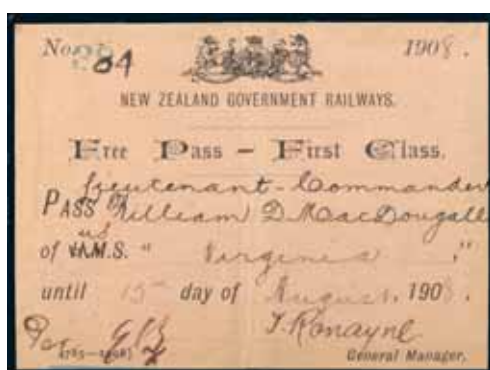 No. 84 1908.
NEW ZEALAND GOVERNMENT RAILWAYS.
Free Pass – First Class.
Lieutenant-Commander
PASS William D MacDougall
of U.S. H.M.S. " Virginia "
until 15th day of August, 1908
T. Ronayne
Per
General Manager.